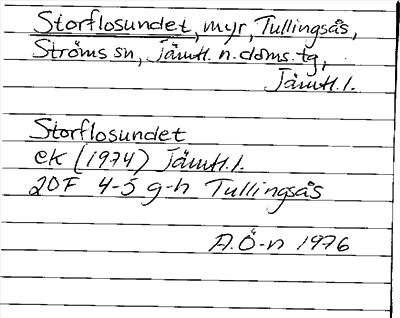 Storflosundet, myr, Tullingsås,
Ströms sn, Jämtl. n. doms. tg,
Jämtl. l.
Storflosundet
ek (1974) Jämtl. l.
20F 4-5 g-h Tullingsås
A.Ö-n 1976